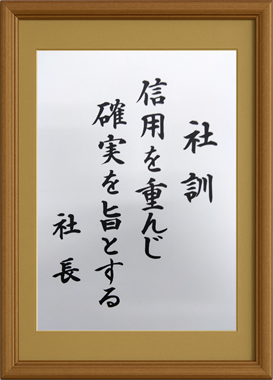 社訓
信用を重んじ
確実を旨とする
社長